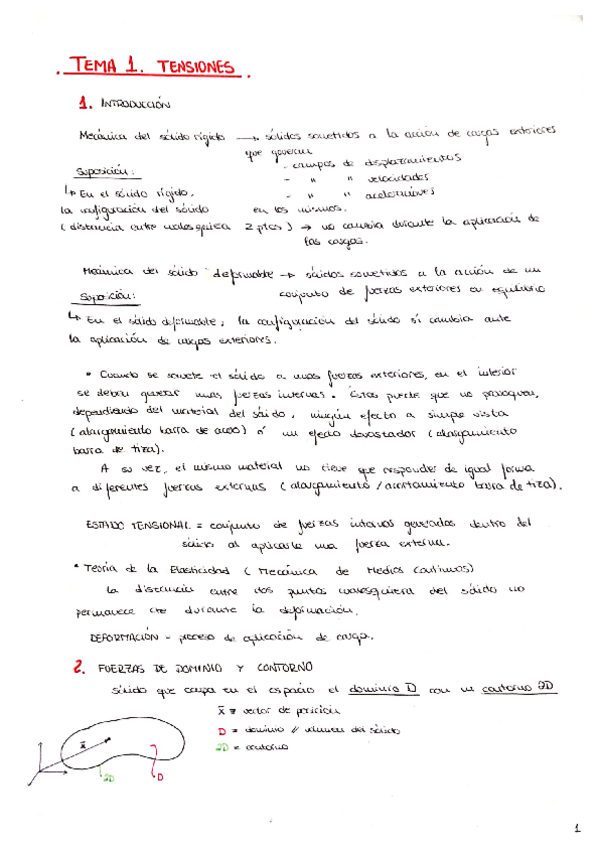 TEMA 1. TENSIONES
1. INTRODUCCIÓN
Mecánica del sólido rígido → sólidos sometidos a la acción de cargas exteriores
que generan
- campos de desplazamientos
Suposición:
- " " velocidades
↳ En el sólido rígido,
- " " aceleraciones
la configuración del sólido en los mismos.
(distancia entre cualesquiera 2 ptos) → no cambia durante la aplicación de
las cargas.
Mecánica del sólido deformable → sólidos sometidos a la acción de un
Suposición:
conjunto de fuerzas exteriores en equilibrio
↳ En el sólido deformable, la configuración del sólido sí cambia ante
la aplicación de cargas exteriores.
• Cuando se somete el sólido a unas fuerzas exteriores, en el interior
se deben generar unas fuerzas internas. Éstas puede que no provoquen,
dependiendo del material del sólido, ningún efecto a simple vista
(alargamiento barra de acero) ó un efecto devastador (alargamiento
barra de tiza).
A su vez, el mismo material no tiene que responder de igual forma
a diferentes fuerzas externas (alargamiento / acortamiento barra de tiza).
ESTADO TENSIONAL = conjunto de fuerzas internas generadas dentro del
sólido al aplicarle una fuerza externa.
• Teoría de la Elasticidad (Mecánica de Medios Continuos)
la distancia entre dos puntos cualesquiera del sólido no
permanece cte durante la deformación.
DEFORMACIÓN = proceso de aplicación de carga.
2. FUERZAS DE DOMINIO Y CONTORNO
sólido que ocupa en el espacio el dominio D con un contorno ∂D
x̄ ≡ vector de posición
D ≡ dominio // volumen del sólido
∂D ≡ contorno
x̄
∂D
D
1